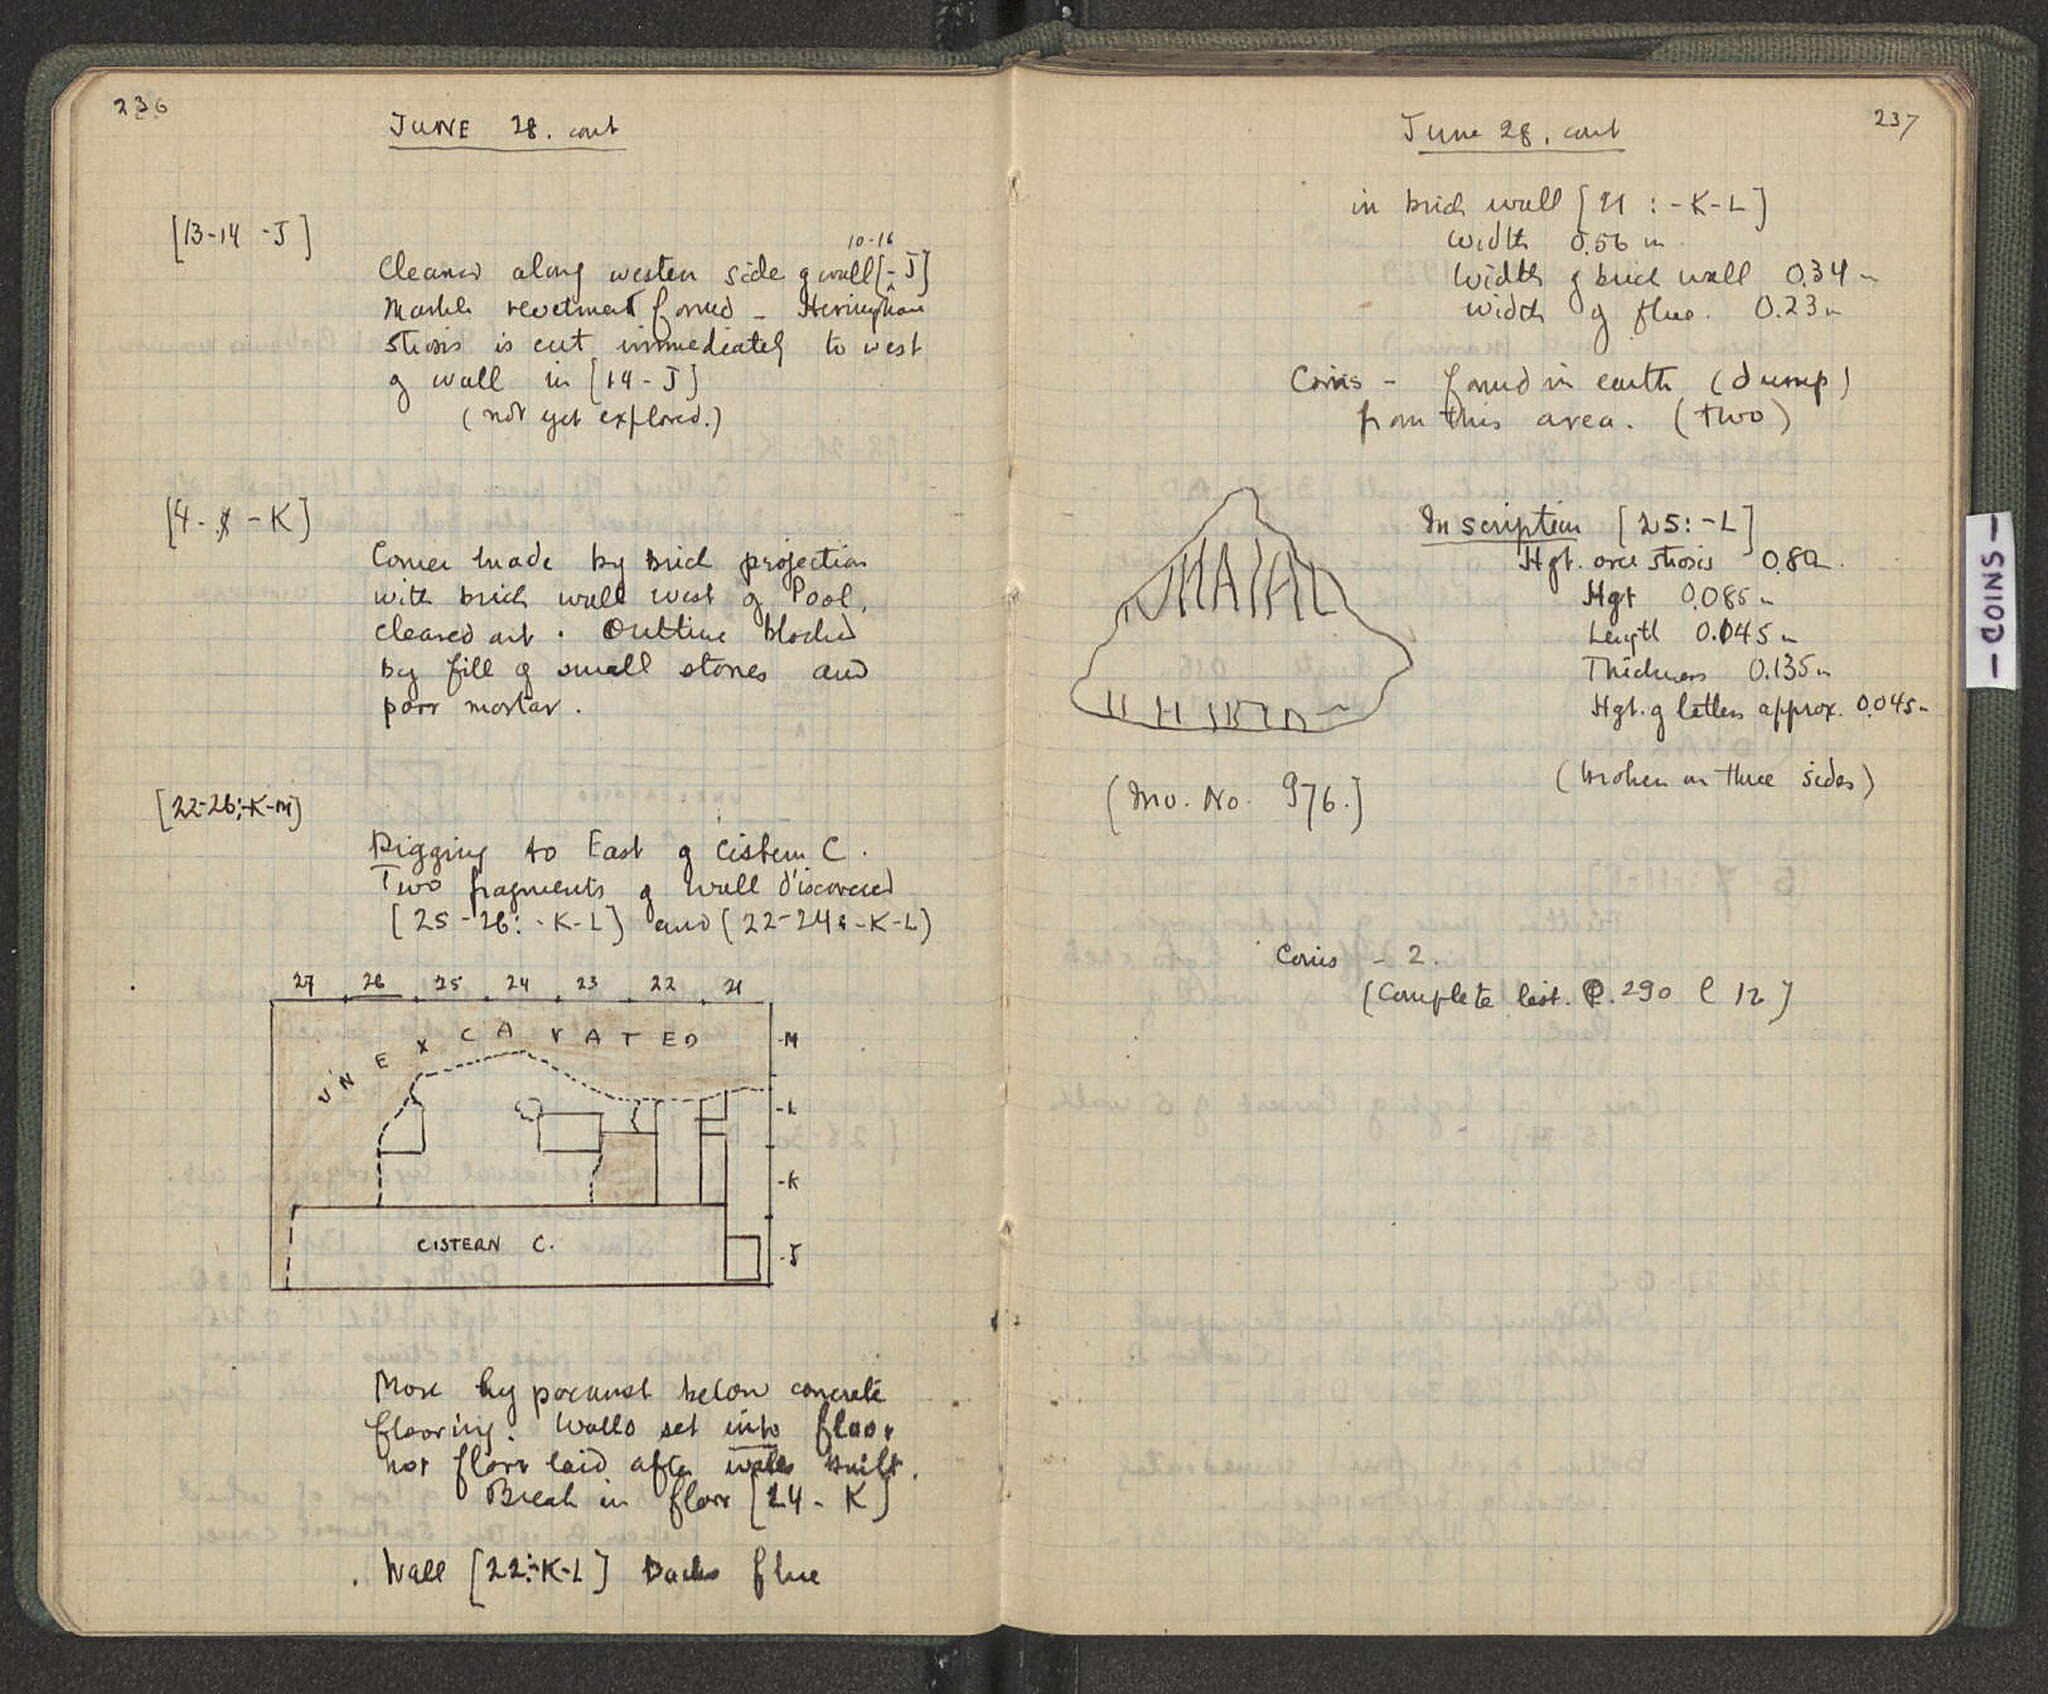 236
JUNE 28. cont
[13-14 -J]
10-16
Cleaned along western side of wall [-J]
Marble revetment found - Herringbone
Strosis is cut immediately to west
of wall in [14-J]
(not yet explored.)
[4- -K]
Corner made by brick projection
with brick wall west of Pool,
cleared out. Outline blocked
by fill of small stones and
poor mortar.
[22-26:-K-M]
Digging to East of Cistern C.
Two fragments of wall discovered
[25-26:-K-L] and (22-24:-K-L)
27 26 25 24 23 22 21
UNEXCAVATED
-M
-L
-K
-J
CISTERN C.
More hypocaust below concrete
flooring. Walls set into floor
not floor laid after walls built.
Break in floor [24-K]
. Wall [22:-K-L] Backs flue
237
June 28, cont
in brick wall [21:-K-L]
Width 0.56 m
Width of brick wall 0.34 m
Width of flue. 0.23 m
Coins - found in earth (dump)
from this area. (two)
Inscription [25:-L]
Hgt. over strosis 0.80
Hgt 0.085 m
Length 0.145 m
Thickness 0.135 m
Hgt. of letters approx. 0.045 m
(broken on three sides)
(Inv. No. 976.]
Coins - 2.
(Complete list. P. 290 12]
- COINS -